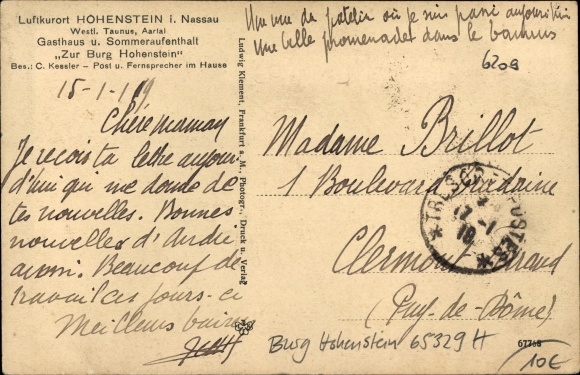 Luftkurort HOHENSTEIN i. Nassau
Westl. Taunus, Aartal
Gasthaus u. Sommeraufenthalt
„Zur Burg Hohenstein"
Bes.: C. Kessler – Post u. Fernsprecher im Hause
15-1-19
Chère maman
Je recois ta lettre aujour
d'hui qui me donne de
tes nouvelles. Bonnes
nouvelles d'André
aussi. Beaucoup de
travail ces jours-ci
Meilleurs baisers
Ludwig Klement, Frankfurt a. M., Photogr., Druck u. Verlag
Une vue du patelin où je suis passé aujourd'hui
Une belle promenade dans le
6209
Madame Brillot
1 Boulevard
TRESOR POSTES
17-1
19
Clermont-Ferrand
(Puy-de-Dôme)
Burg Hohenstein 65329 H
67768
10€